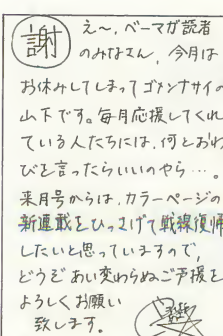 謝
え〜，ベーマガ読者
のみなさん，今月は
お休みしてしまってゴメンナサイの
山下です。毎月応援してくれ
ている人たちには，何とおわ
びを言ったらいいのやら…。
来月号からは，カラーページの
新連載をひっさげて戦線復帰
したいと思っていますので，
どうぞあい変わらぬご声援を
よろしくお願い
致します。